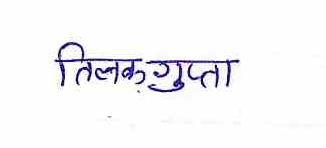 तिलक गुप्ता